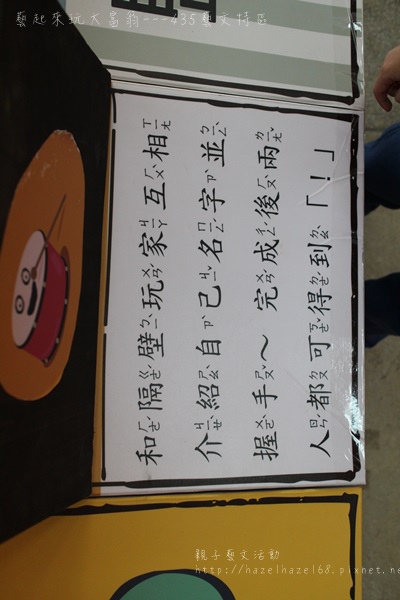 藝起來玩大富翁---435藝文特區
和隔壁玩家互相
介紹自己名字並
握手～完成後兩
人都可得到「！」
親子藝文活動
http://hazelhazel68.pixnet.net